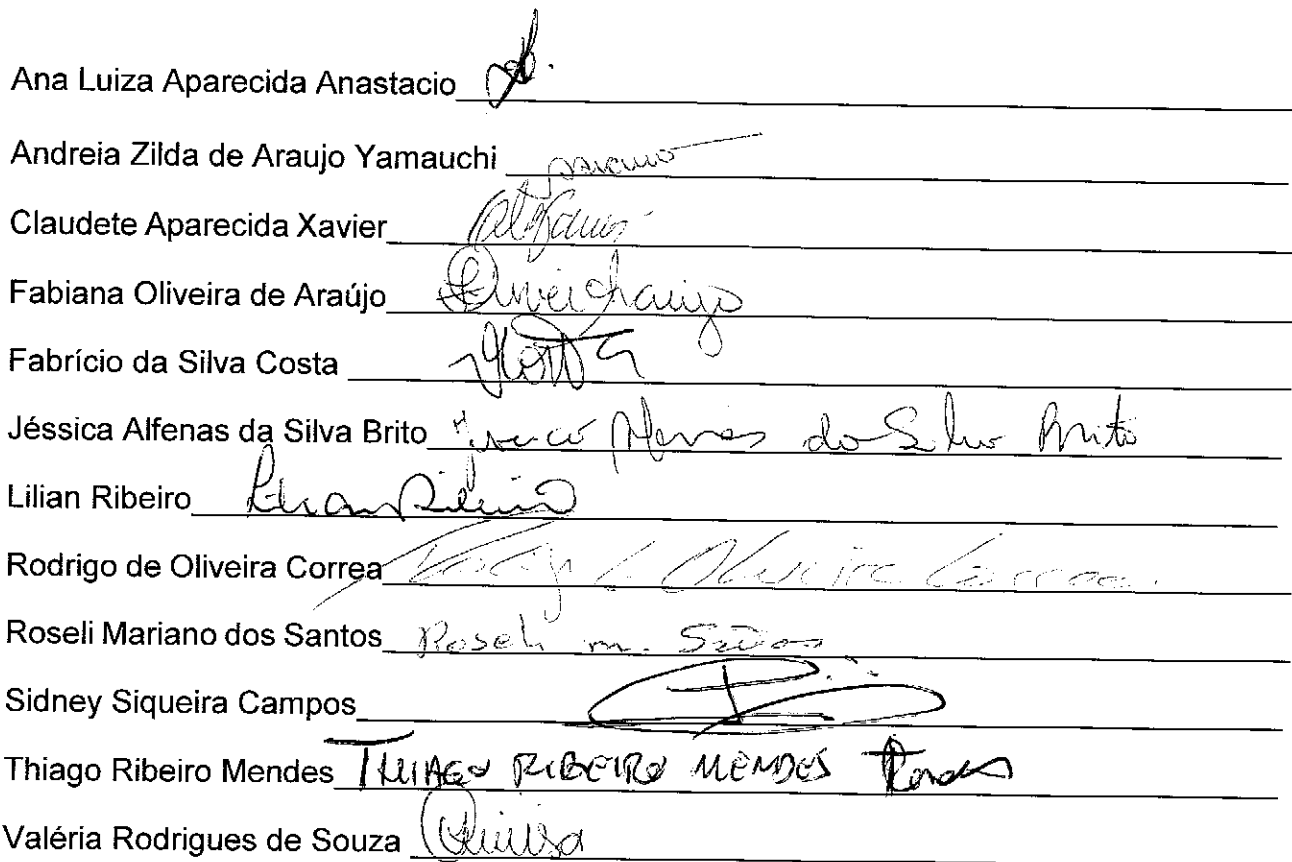 Ana Luiza Aparecida Anastacio
Andreia Zilda de Araujo Yamauchi
Claudete Aparecida Xavier
Fabiana Oliveira de Araújo
Fabrício da Silva Costa
Jéssica Alfenas da Silva Brito Jéssica Alfenas da Silva Brito
Lilian Ribeiro Lilian Ribeiro
Rodrigo de Oliveira Correa Rodrigo d Oliveira Correa
Roseli Mariano dos Santos Roseli m. Santos
Sidney Siqueira Campos
Thiago Ribeiro Mendes THIAGO RIBEIRO MENDES
Valéria Rodrigues de Souza